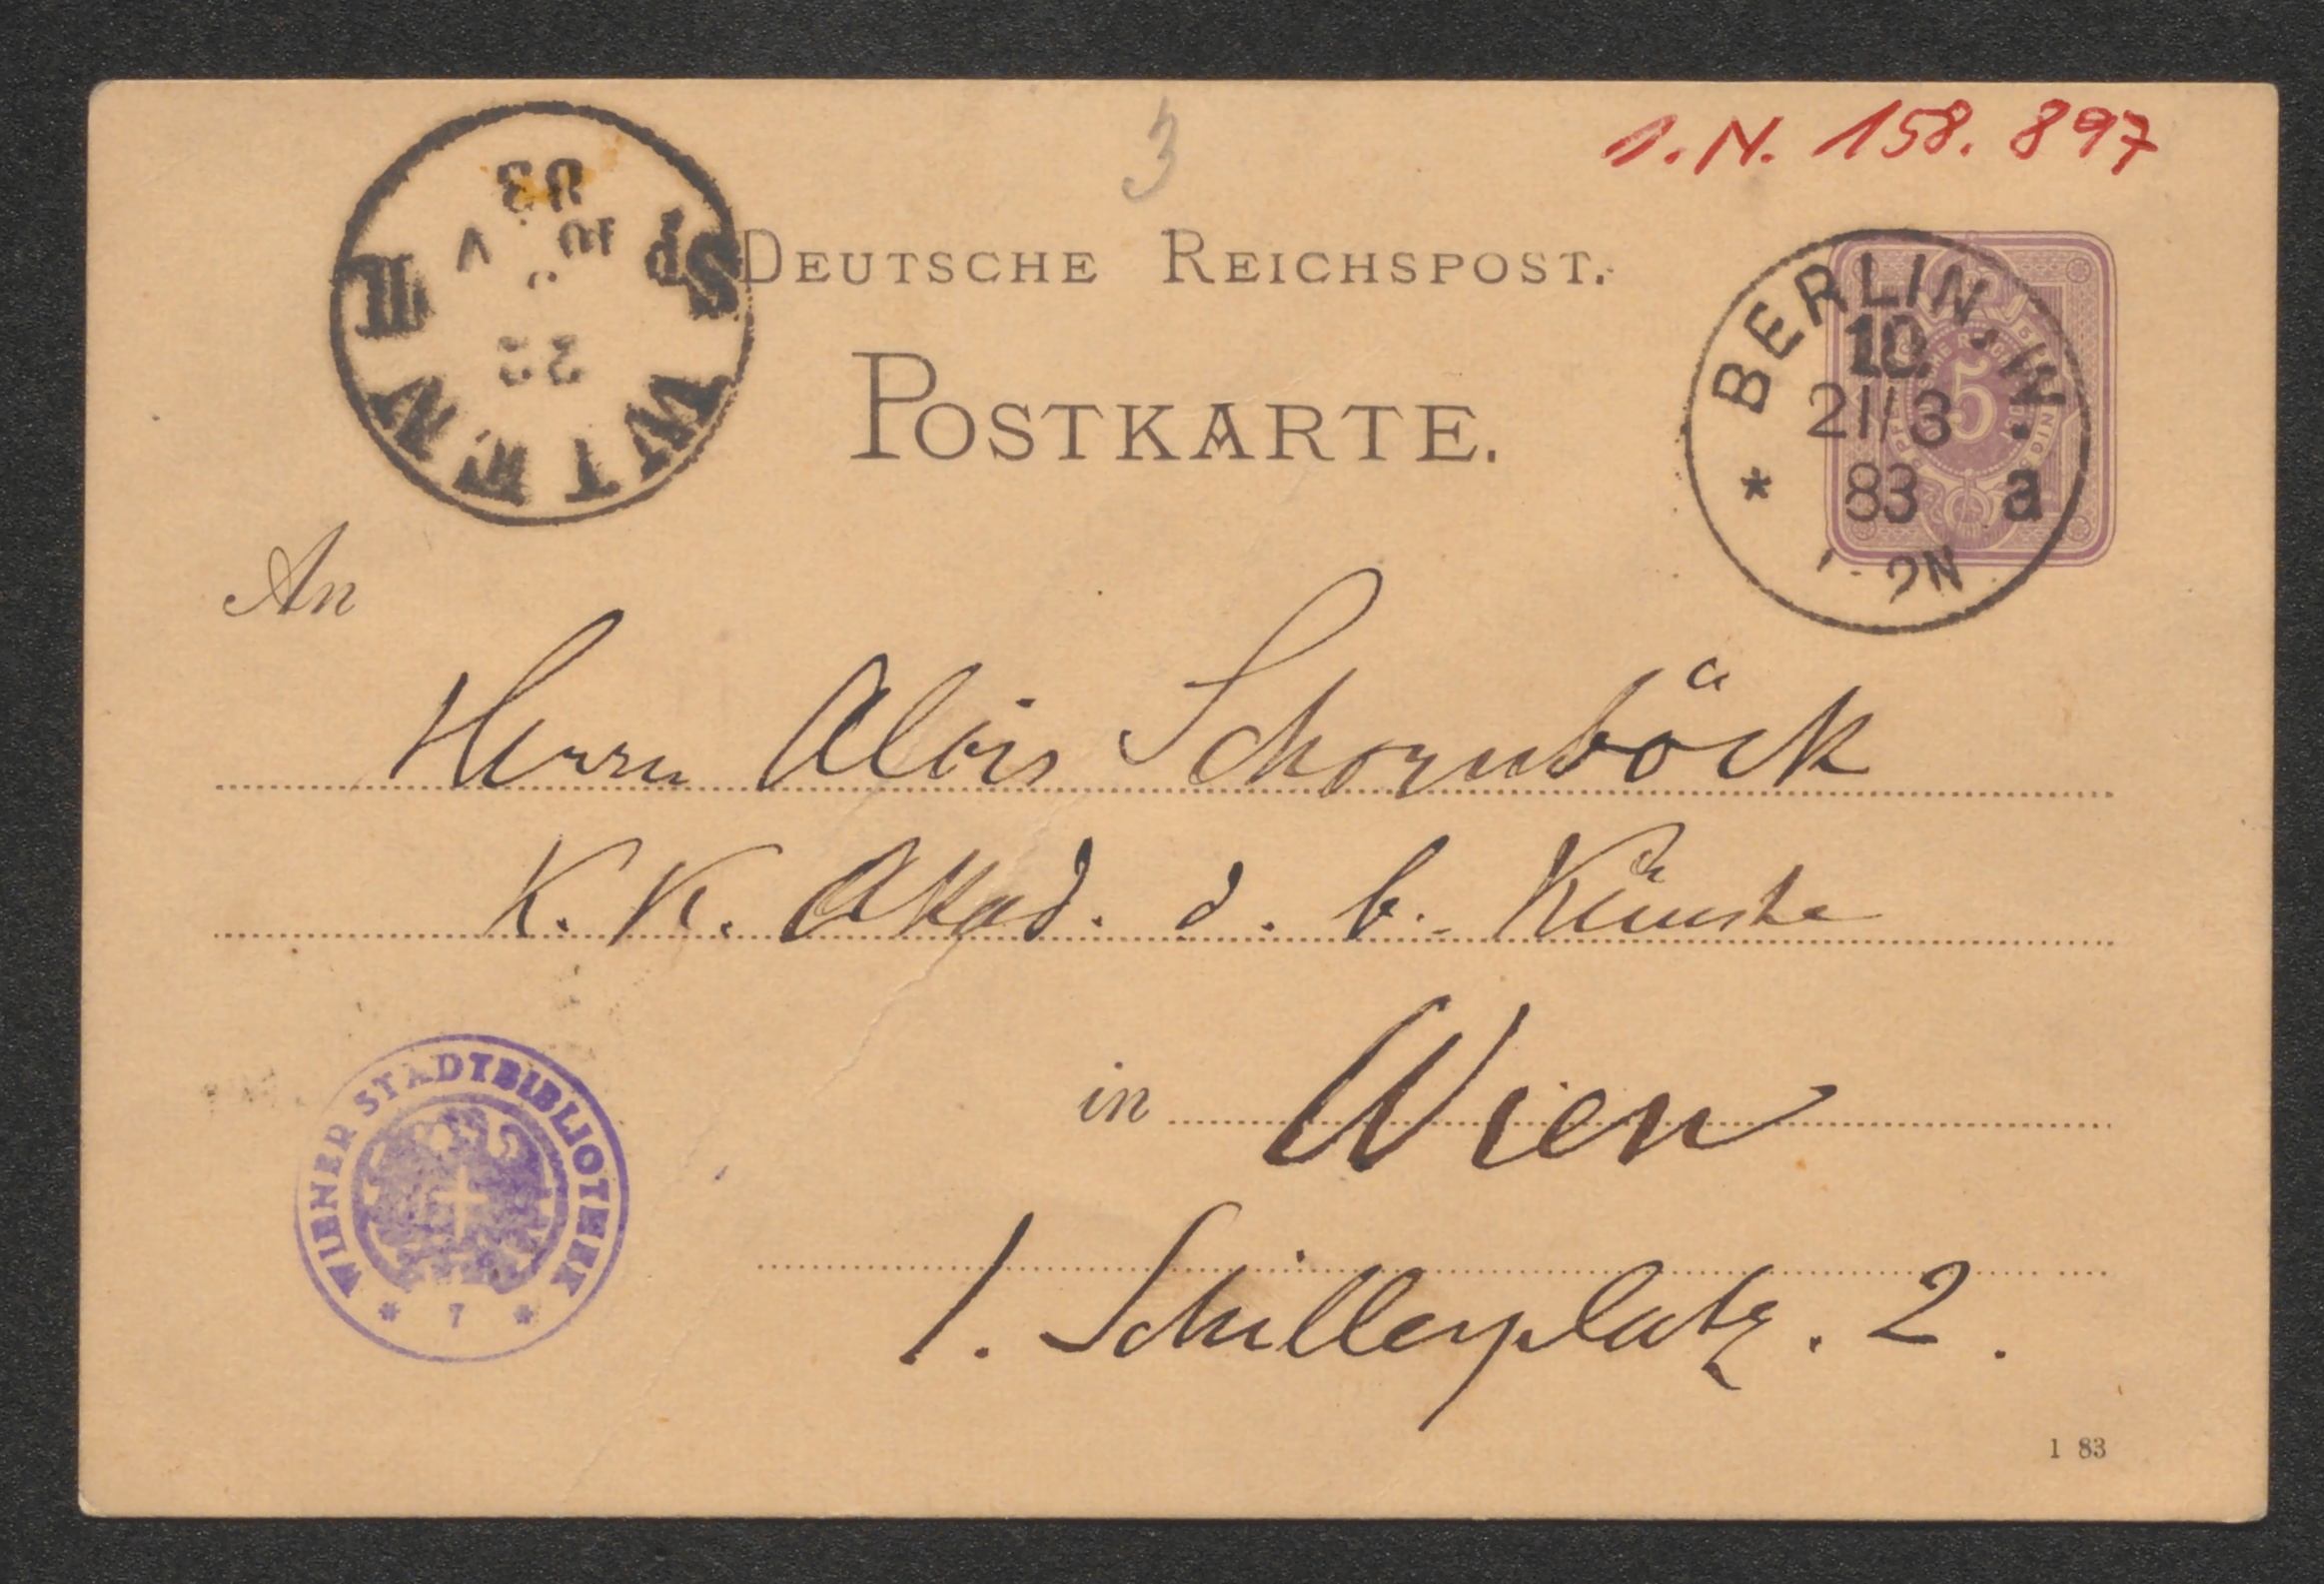 3
I. N. 158. 897
DEUTSCHE REICHSPOST.
POSTKARTE.
WIEN
83
10 V
22
BERLIN, W.
10.
21/3
83 a
2N
5
An
Herrn Alois Schornböck
K. K. Akad. d. b. Künste
in Wien
I. Schillerplatz. 2.
WIENER STADTBIBLIOTHEK
* 7 *
1 83